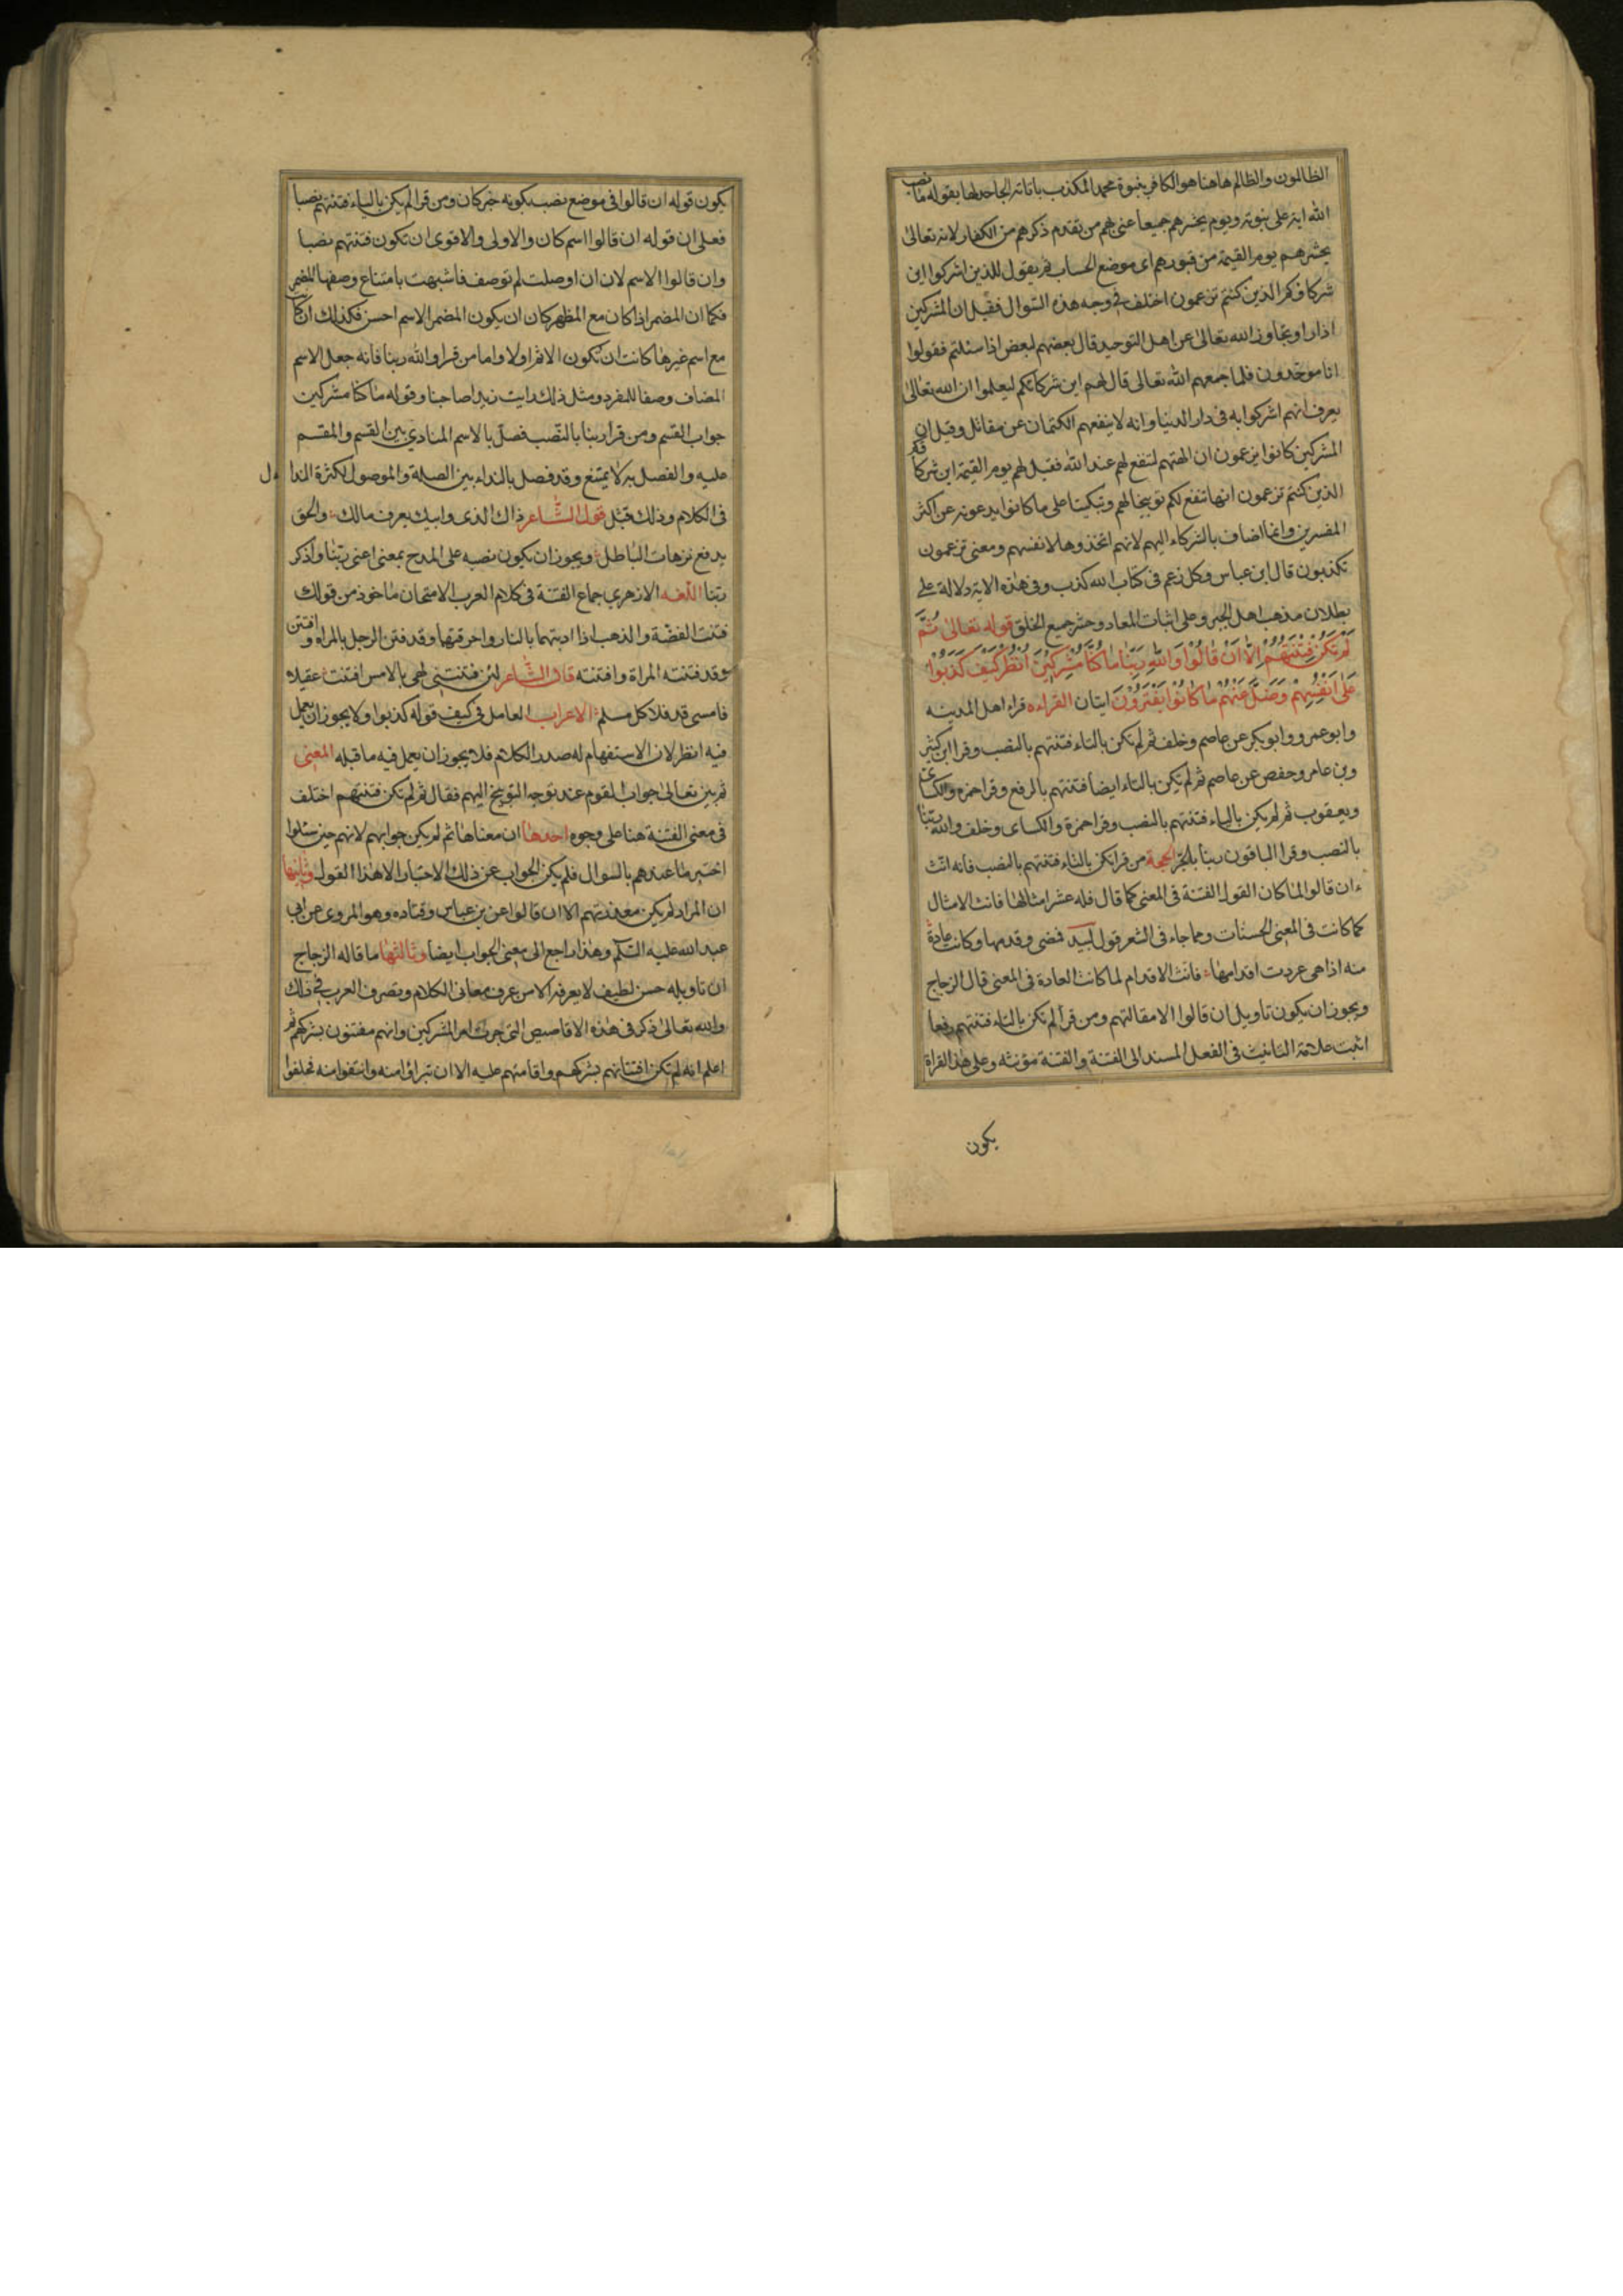 الظالمون والظالم هاهنا هو الكافر بنبوة محمد المكذب باياته الجاحد لها بقوله ما نصب
الله اية على نبوته ويوم يحشرهم جميعا عنى بهم من تقدم ذكرهم من الكفار لانه تعالى
يحشرهم يوم القيمة من قبورهم اى موضع الحساب ثم يقول للذين اشركوا اين
شركاؤكم الذين كنتم تزعمون اختلف في وجه هذه السوال فقيل ان المشركين
اذا راو تجاوز الله تعالى عن اهل التوحيد قال بعضهم لبعض اذا سئلتم فقولوا
انا موحدون فلما جمعهم الله تعالى قال لهم اين شركاؤكم ليعلموا ان الله تعالى
يعرف انهم اشركوا به فى دار الدنيا وانه لا ينفعهم الكتمان عن مقاتل وقيل ان
المشركين كانوا يزعمون ان الهتهم لتنفع لهم عند الله فقيل لهم يوم القيمة اين شركاؤكم
الذين كنتم تزعمون انها تنفع لكم توبيخا لهم وتبكيتا على ما كانوا يدعونه عن اكثر
المفسرين وانما اضاف بالشركاء اليهم لانهم اتخذوها لانفسهم ومعنى تزعمون
تكذبون قال ابن عباس وكل زعم فى كتاب الله كذب وفى هذه الاية دلالة على
بطلان مذهب اهل الجبر وعلى اثبات المعاد وحشر جميع الخلق قوله تعالى ثُمَّ
لَمْ تَكُنْ فِتْنَتُهُمْ اِلَّا اَنْ قَالُوْا وَاللهِ رَبِّنَا مَا كُنَّا مُشْرِكِيْنَ اُنْظُرْ كَيْفَ كَذَبُوْا
عَلٰى اَنْفُسِهِمْ وَضَلَّ عَنْهُمْ مَا كَانُوْا يَفْتَرُوْنَ ايتان القراءه قراء اهل المدينه
وابو عمرو وابو بكر عن عاصم وخلف ثم لم تكن بالتاء فتنتهم بالنصب وقرا ابن كثير
وبن عامر وحفص عن عاصم ثم لم تكن بالتاء ايضا فتنتهم بالرفع وقرا حمزه والكسائى
ويعقوب ثم لم يكن بالياء فتنتهم بالنصب وقرا حمزة والكساى وخلف والله ربنا
بالنصب وقرا الباقون ربنا بالجر الحجة من قرا تكن بالتاء فتنتهم بالنصب فانه انث
ان قالوا لما كان القول الفتنة فى المعنى كما قال فله عشر امثالها فانث الامثال
كما كانت فى المعنى الحسنات ومما جاء فى الشعر قول لبيد فمضى وقدمها وكانت عادة
منه اذا هى عردت اقدامها فانث الاقدام لما كانت العادة فى المعنى قال الزجاج
ويجوز ان يكون تاويل ان قالوا الا مقالتهم ومن قرأ لم تكن بالتاء فتنتهم رفعا
اثبت علامة التانيث فى الفعل المسند الى الفتنة والفتنة مؤنثه وعلى هذا القراة
يكون
يكون قوله ان قالوا فى موضع نصب بكونه خبر كان ومن قرا لم يكن بالياء فتنتهم نصبا
فعلى ان قوله ان قالوا اسم كان والاولى والاقوى ان تكون فتنتهم نصبا
وان قالوا الاسم لان ان اوصلت لم توصف فاشبهت بامتناع وصفها المضمر
فكما ان المضمر اذا كان مع المظهر كان ان يكون المضمر الاسم احسن فكذلك ان كا
مع اسم غيرها كانت ان تكون الاثر اولا واما من قرا والله ربنا فانه جعل الاسم
المضاف وصفا للمفرد ومثل ذلك رايت زيدا صاحبنا وقوله ما كنا مشركين
جواب القسم ومن قرا ربنا بالنصب فصل بالاسم المنادي بين القسم والمقسم
عليه والفصل به لا يمتنع وقد فصل بالنداء بين الصلة والموصول لكثرة الندا
فى الكلام وذلك قبل قول الشاعر ذاك الذى وابيك يعرف مالك والحق
يدفع نزهات الباطل ويجوز ان يكون نصبه على المدح بمعنى اعنى ربنا واذكر
ربنا اللغه الازهري جماع الفتنة فى كلام العرب الامتحان ماخوذ من قولك
فتنت الفضة والذهب اذا اذبتهما بالنار واحرقتها وقد فتن الرجل بالمراه وافتتن
وقد فتنته المراة وافتنته قال الشاعر لئن فتنتنى لهى بالامس افتنت عقيلا
فامسى قد قلا كل مسلم الاعراب العامل فى كيف قوله كذبوا ولا يجوز ان يعمل
فيه انظر لان الاستفهام له صدر الكلام فلا يجوز ان يعمل فيه ما قبله المعنى
ثم بين تعالى جواب القوم عند توجه التوبيخ اليهم فقال ثم لم تكن فتنتهم اختلف
فى معنى الفتنة هنا على وجوه احدها ان معناها ثم لم يكن جوابهم لانهم حين سئلوا
اختبر ما عندهم بالسوال فلم يكن الجواب عن ذلك الاختبار الا هذا القول وثانيها
ان المراد لم يكن معذرتهم الا ان قالوا عن بن عباس وقتاده وهو المروى عن ابى
عبد الله عليه السلام وهذا راجع الى معنى الجواب ايضا وثالثها ما قاله الزجاج
ان تاويله حسن لطيف لا يعرفه الا من عرف معانى الكلام وتصرف العرب في ذلك
والله تعالى ذكر فى هذه الاقاصيص التى جرت امر المشركين وانهم مفتنون بشركهم ثم
اعلم انه لم يكن افتتانهم بشركهم واقامتهم عليه الا ان تبراؤا منه وانتفوا منه فحلفوا